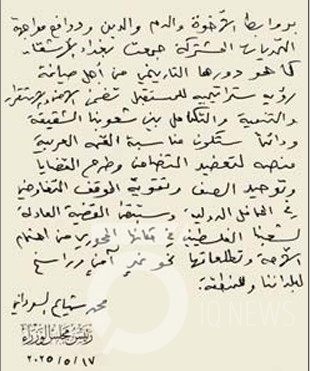 بروابط الأخوة والدم والدين ودوافع مواجهة
التحديات المشتركة جمعت بغداد الأشقاء
كما هو دورها التاريخي من أجل صياغة
رؤية ستراتيجية للمستقبل تضمن الأمن والاستقرار
والتنمية والتكامل بين شعوبنا الشقيقة
ودائماً ستكون مناسبة القمة العربية
منصة لتعضيد التضامن وطرح القضايا
وتوحيد الصف وتقوية الموقف التفاوضي
في المحافل الدولية وستبقى القضية العادلة
لشعبنا الفلسطيني في مكانها المحوري من اهتمام
الأمة وتطلعاتها نحو غدٍ آمن وراسخ
لبلداننا وللمنطقة.
محمد شياع السوداني
رئيس مجلس الوزراء
٢٠٢٥/٥/١٧
IQ NEWS